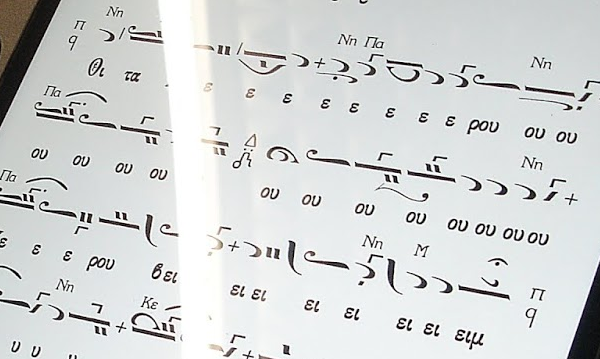 Νη Νη Πα Νη
π q
Θι τα ε ε ε ε ε ε ε ε ρου ου ου
Πα Δ Νη
ου ου ου ου ου ου ου ου ου ου ου ου
Πα Νη Μ π q
ε ε ε ρου βει ει ει ει ει ει ει ειμ
Νη Κε
υ υ